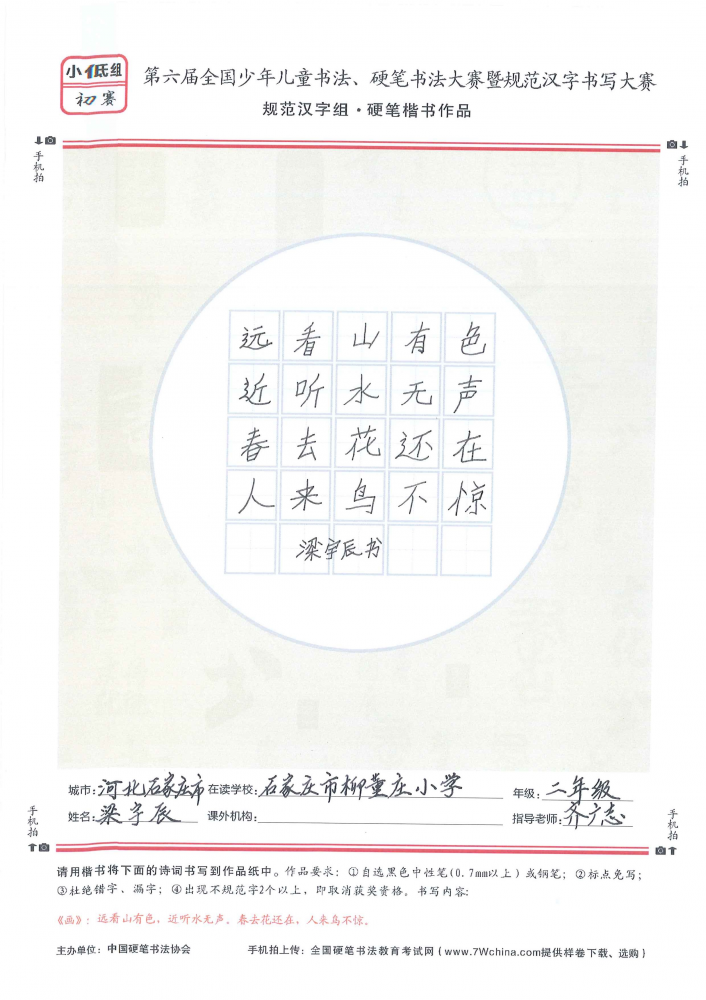 小低组
初赛
第六届全国少年儿童书法、硬笔书法大赛暨规范汉字书写大赛
规范汉字组·硬笔楷书作品
手机拍
手机拍
远看山有色
近听水无声
春去花还在
人来鸟不惊
梁宇辰书
城市:河北石家庄市 在读学校:石家庄市柳董庄小学 年级:二年级
姓名:梁宇辰 课外机构: 指导老师:齐广志
手机拍
手机拍
请用楷书将下面的诗词书写到作品纸中。作品要求:①自选黑色中性笔(0.7mm以上)或钢笔;②标点免写;
③杜绝错字、漏字;④出现不规范字2个以上,即取消获奖资格。书写内容:
《画》:远看山有色,近听水无声。春去花还在,人来鸟不惊。
主办单位:中国硬笔书法协会 手机拍上传:全国硬笔书法教育考试网(www.7Wchina.com提供样卷下载、选购)